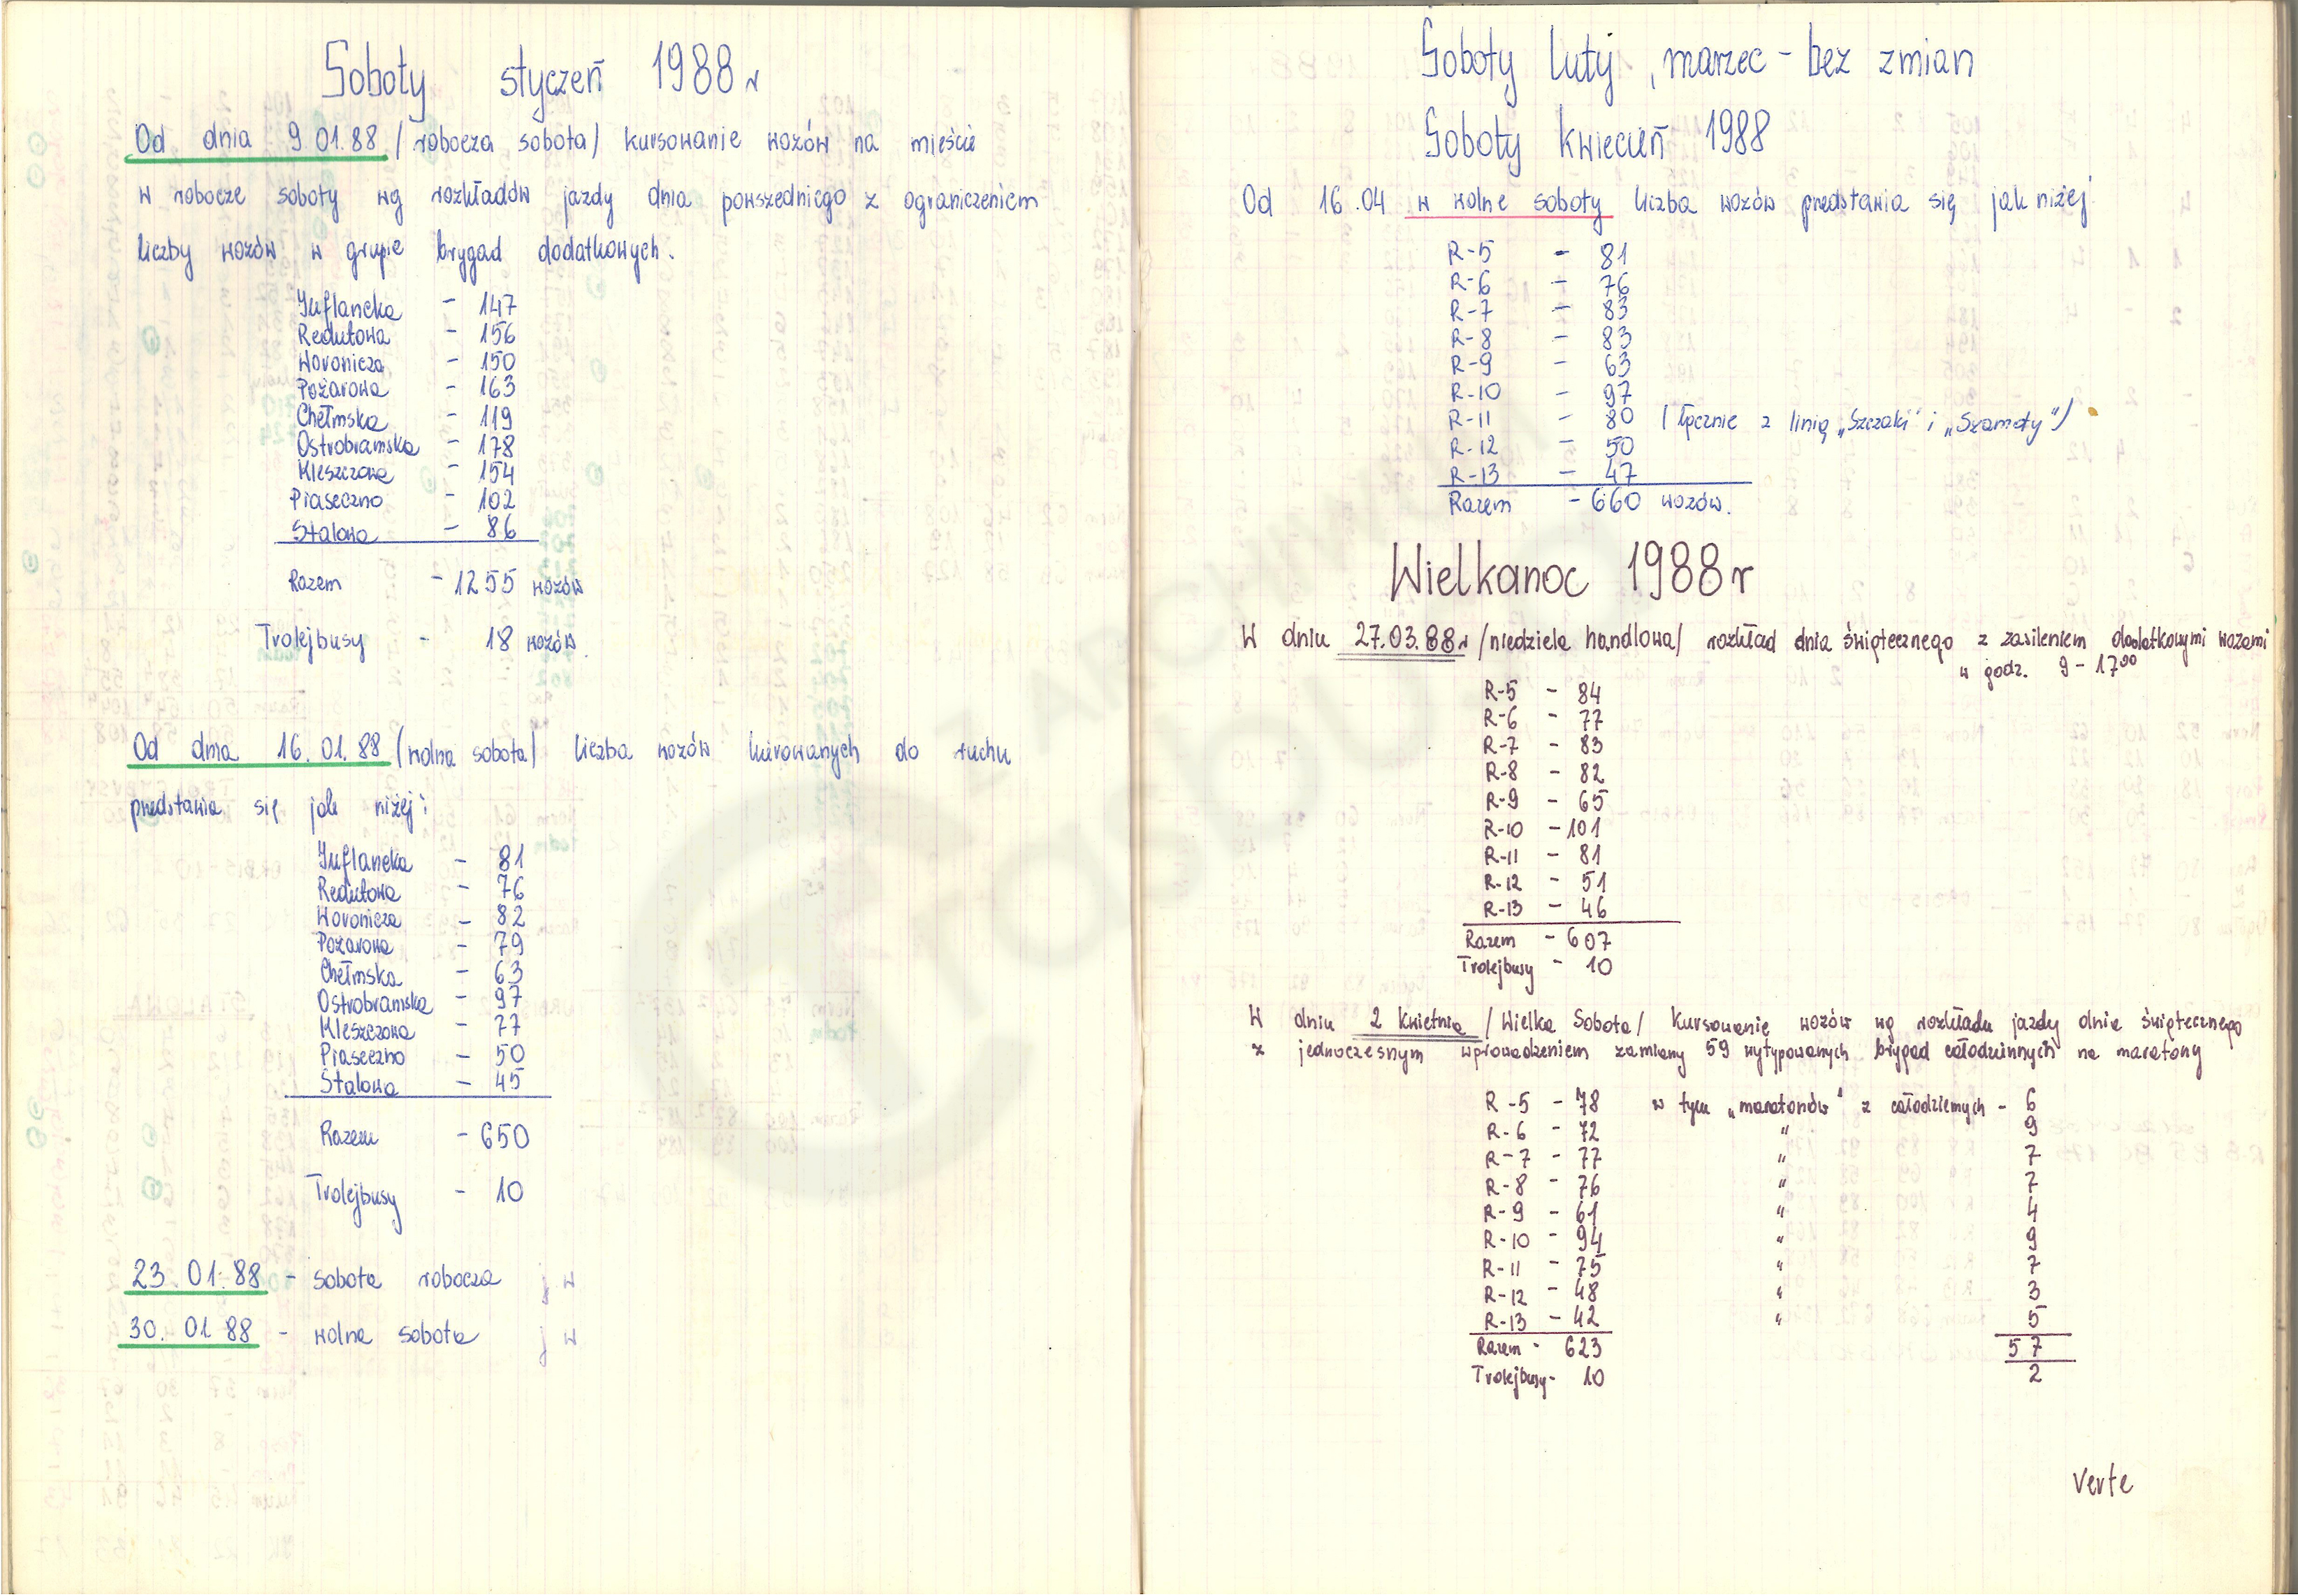 Soboty styczeń 1988 r
Od dnia 9 01.88 / robocza sobota / kursowanie wozów na mieście
w robocze soboty wg rozkładów jazdy dnia powszedniego z ograniczeniem
liczby wozów w grupie brygad dodatkowych.
Inflancka - 147
Redutowa - 156
Woronicza - 150
Pożarowa - 163
Chełmska - 119
Ostrobramska - 178
Kleszczowa - 154
Piaseczno - 102
Stalowa - 86
Razem - 1255 wozów
Trolejbusy - 18 wozów
Od dnia 16. 01. 88 / wolna sobota / liczba wozów kierowanych do ruchu
predstawia się jak niżej:
Inflancka - 81
Redutowa - 76
Woronicza - 82
Pożarowa - 79
Chełmska - 63
Ostrobramska - 97
Kleszczowa - 77
Piaseczno - 50
Stalowa - 45
Razem - 650
Trolejbusy - 10
23. 01. 88 - sobota robocza j w
30. 01 88 - wolna sobota j w
Soboty luty, marzec - bez zmian
Soboty kwiecień 1988
Od 16.04 w wolne soboty liczba wozów predstawia się jak niżej
R-5 - 81
R-6 - 76
R-7 - 83
R-8 - 83
R-9 - 63
R-10 - 97
R-11 - 80 ( łącznie z linią „Szczaki" i „Szamoty" )
R-12 - 50
R-13 - 47
Razem - 660 wozów.
Wielkanoc 1988 r
W dniu 27.03.88 r / niedziela handlowa / rozkład dnia świątecznego z zasileniem dodatkowymi wozami
w godz. 9 - 17⁰⁰
R-5 - 84
R-6 - 77
R-7 - 83
R-8 - 82
R-9 - 65
R-10 - 101
R-11 - 81
R-12 - 51
R-13 - 46
Razem - 607
Trolejbusy - 10
W dniu 2 kwietnia / Wielka Sobota / kursowanie wozów wg rozkładu jazdy dnia świątecznego
z jednoczesnym wprowadzeniem zamiany 59 wytypowanych brygad całodziennych na maratony
R-5 - 78 w tym „maratonów" z całodziennych - 6
R-6 - 72 " 9
R-7 - 77 " 7
R-8 - 76 " 7
R-9 - 61 " 4
R-10 - 94 " 9
R-11 - 75 " 7
R-12 - 48 " 3
R-13 - 42 " 5
Razem - 623 57
Trolejbusy - 10 2
Verte